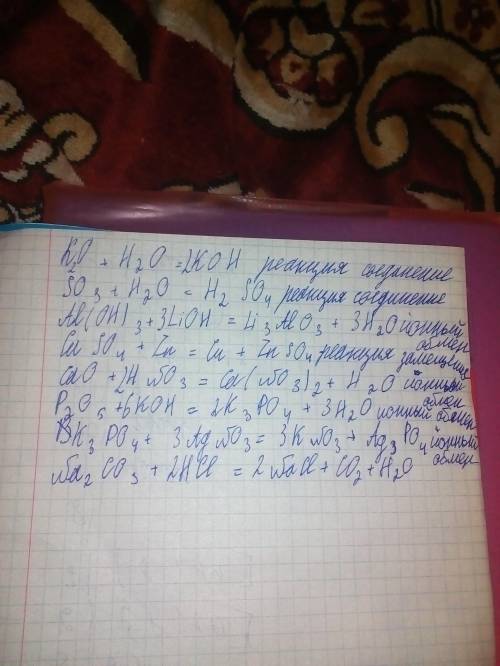 K2O + H2O = 2KOH реакция соединение
SO3 + H2O = H2SO4 реакция соединение
Al(OH)3 + 3LiOH = Li3AlO3 + 3H2O ионный обмен
CuSO4 + Zn = Cu + ZnSO4 реакция замещение
CaO + 2HNO3 = Ca(NO3)2 + H2O ионный обмен
P2O5 + 6KOH = 2K3PO4 + 3H2O ионный обмен
K3PO4 + 3AgNO3 = 3KNO3 + Ag3PO4 ионный обмен
Na2CO3 + 2HCl = 2NaCl + CO2 + H2O